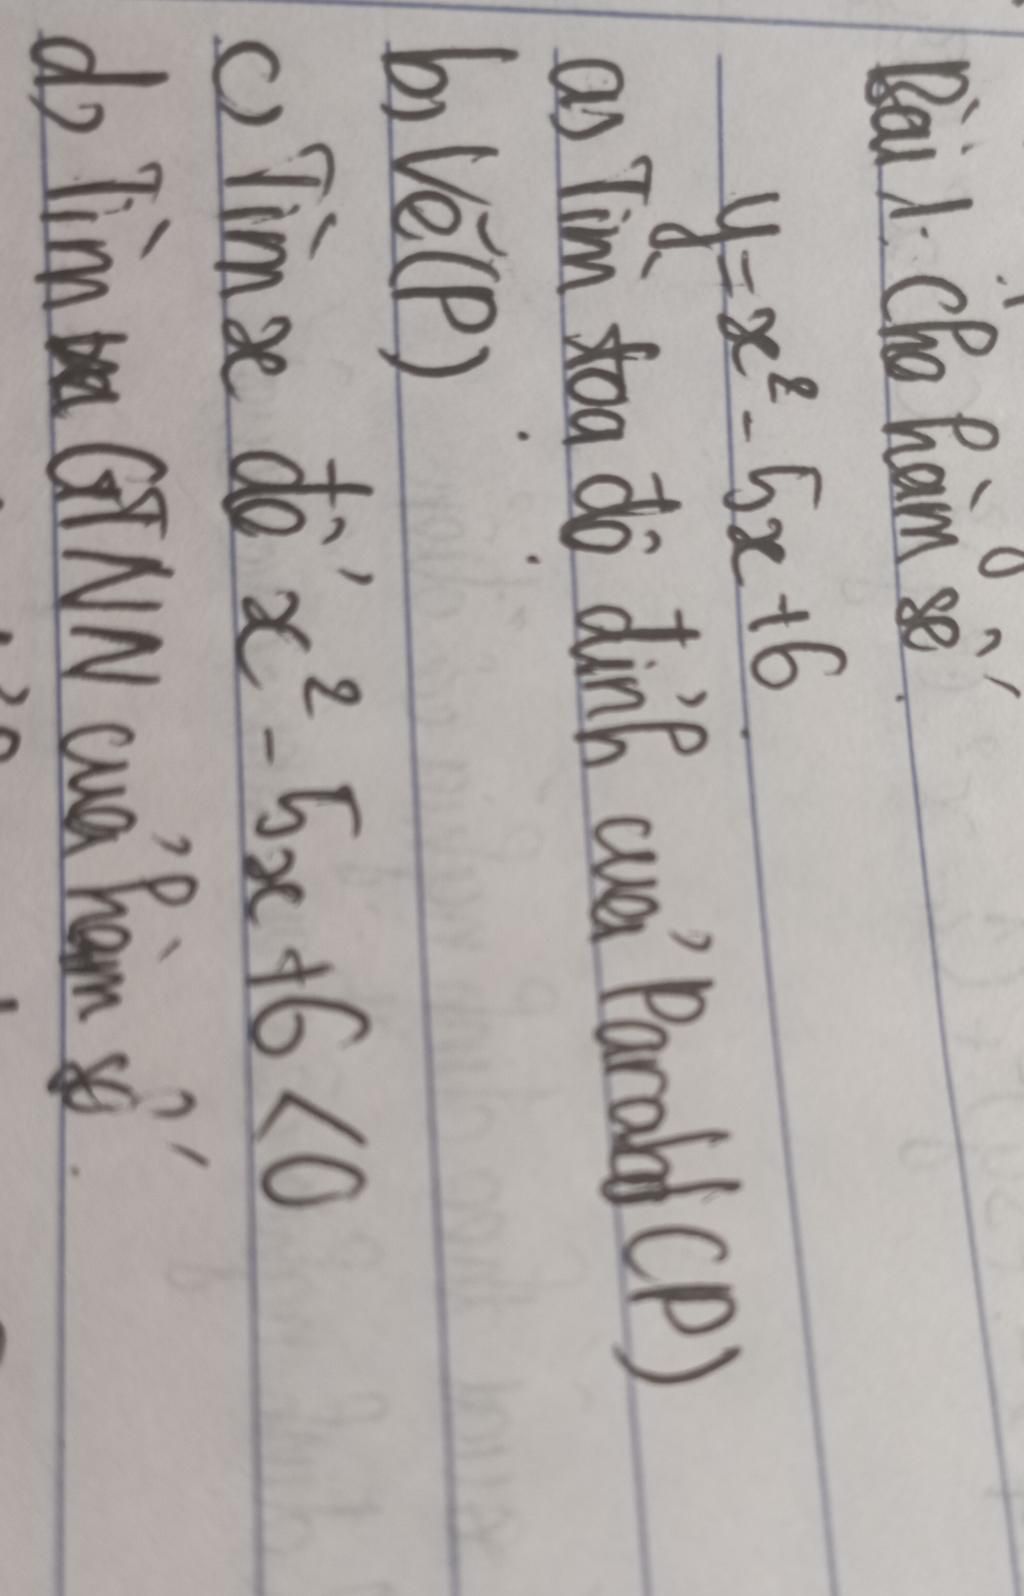 Bài 1. Cho hàm số
y = x² - 5x + 6
a) Tìm tọa độ đỉnh của Parabol (P)
b) Vẽ (P)
c) Tìm x để x² - 5x + 6 < 0
d) Tìm GTNN của hàm số.